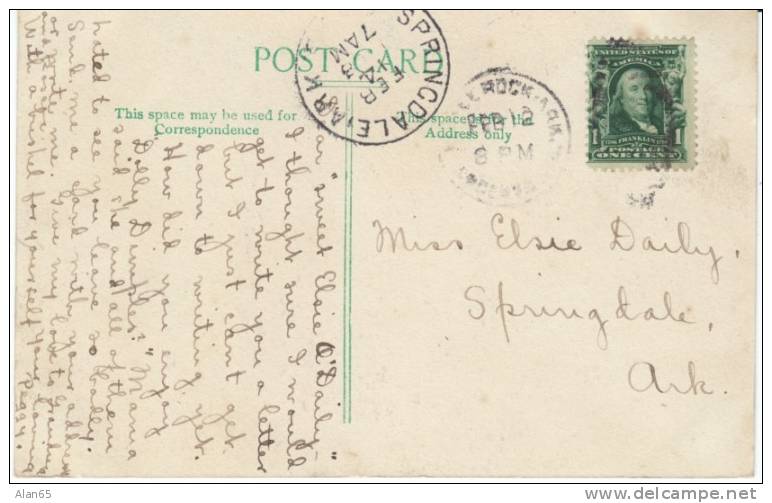 POST CARD
This space may be used for
Correspondence
This space is for the
Address only
SPRINGDALE, ARK.
FEB
7 AM
ROCK, ARK.
FEB 12
8 PM
UNITED STATES OF
AMERICA
FRANKLIN
1 POSTAGE 1
ONE CENT
Miss Elsie Daily,
Springdale,
Ark.
Dear "sweet Elsie O'Daily"-
I thought sure I would
get to write you a letter
but I just can't get
down to writing yet.
"How did you enjoy
Dolly Dimples?" Mama
said she and all of them
hated to see you leave so badly.
Send me a card with your address
or write me. Give my love to Grandma
and
With a bushel for yourself Your loving
Peggy.
Alan65
www.delcampe.net